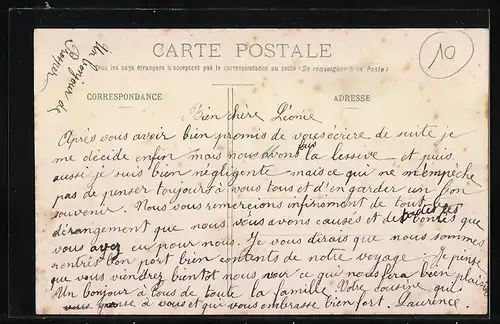 Un bonjour de
CARTE POSTALE
Tous les pays étrangers n'acceptent pas la correspondance au recto (Se renseigner à la Poste)
CORRESPONDANCE
ADRESSE
10
Bien chère Léonie
Après vous avoir bien promis de vous écrire de suite je
me décide enfin mais nous avons fais la lessive et puis
aussi je suis bien négligente mais ce qui ne m'empêche
pas de penser toujours à vous tous et d'en garder un bon
souvenir. Nous vous remercions infiniment de tout le
dérangement que nous vous avons causés et des bontés que
vous avez eu pour nous. Je vous dirais que nous sommes
rentrés bon port bien contents de notre voyage; je pense
que vous viendrez bientôt nous voir ce qui nous fera bien plaisir
Un bonjour à tous de toute la famille Votre cousine qui
pense à vous et qui vous embrasse bien fort. Laurence.